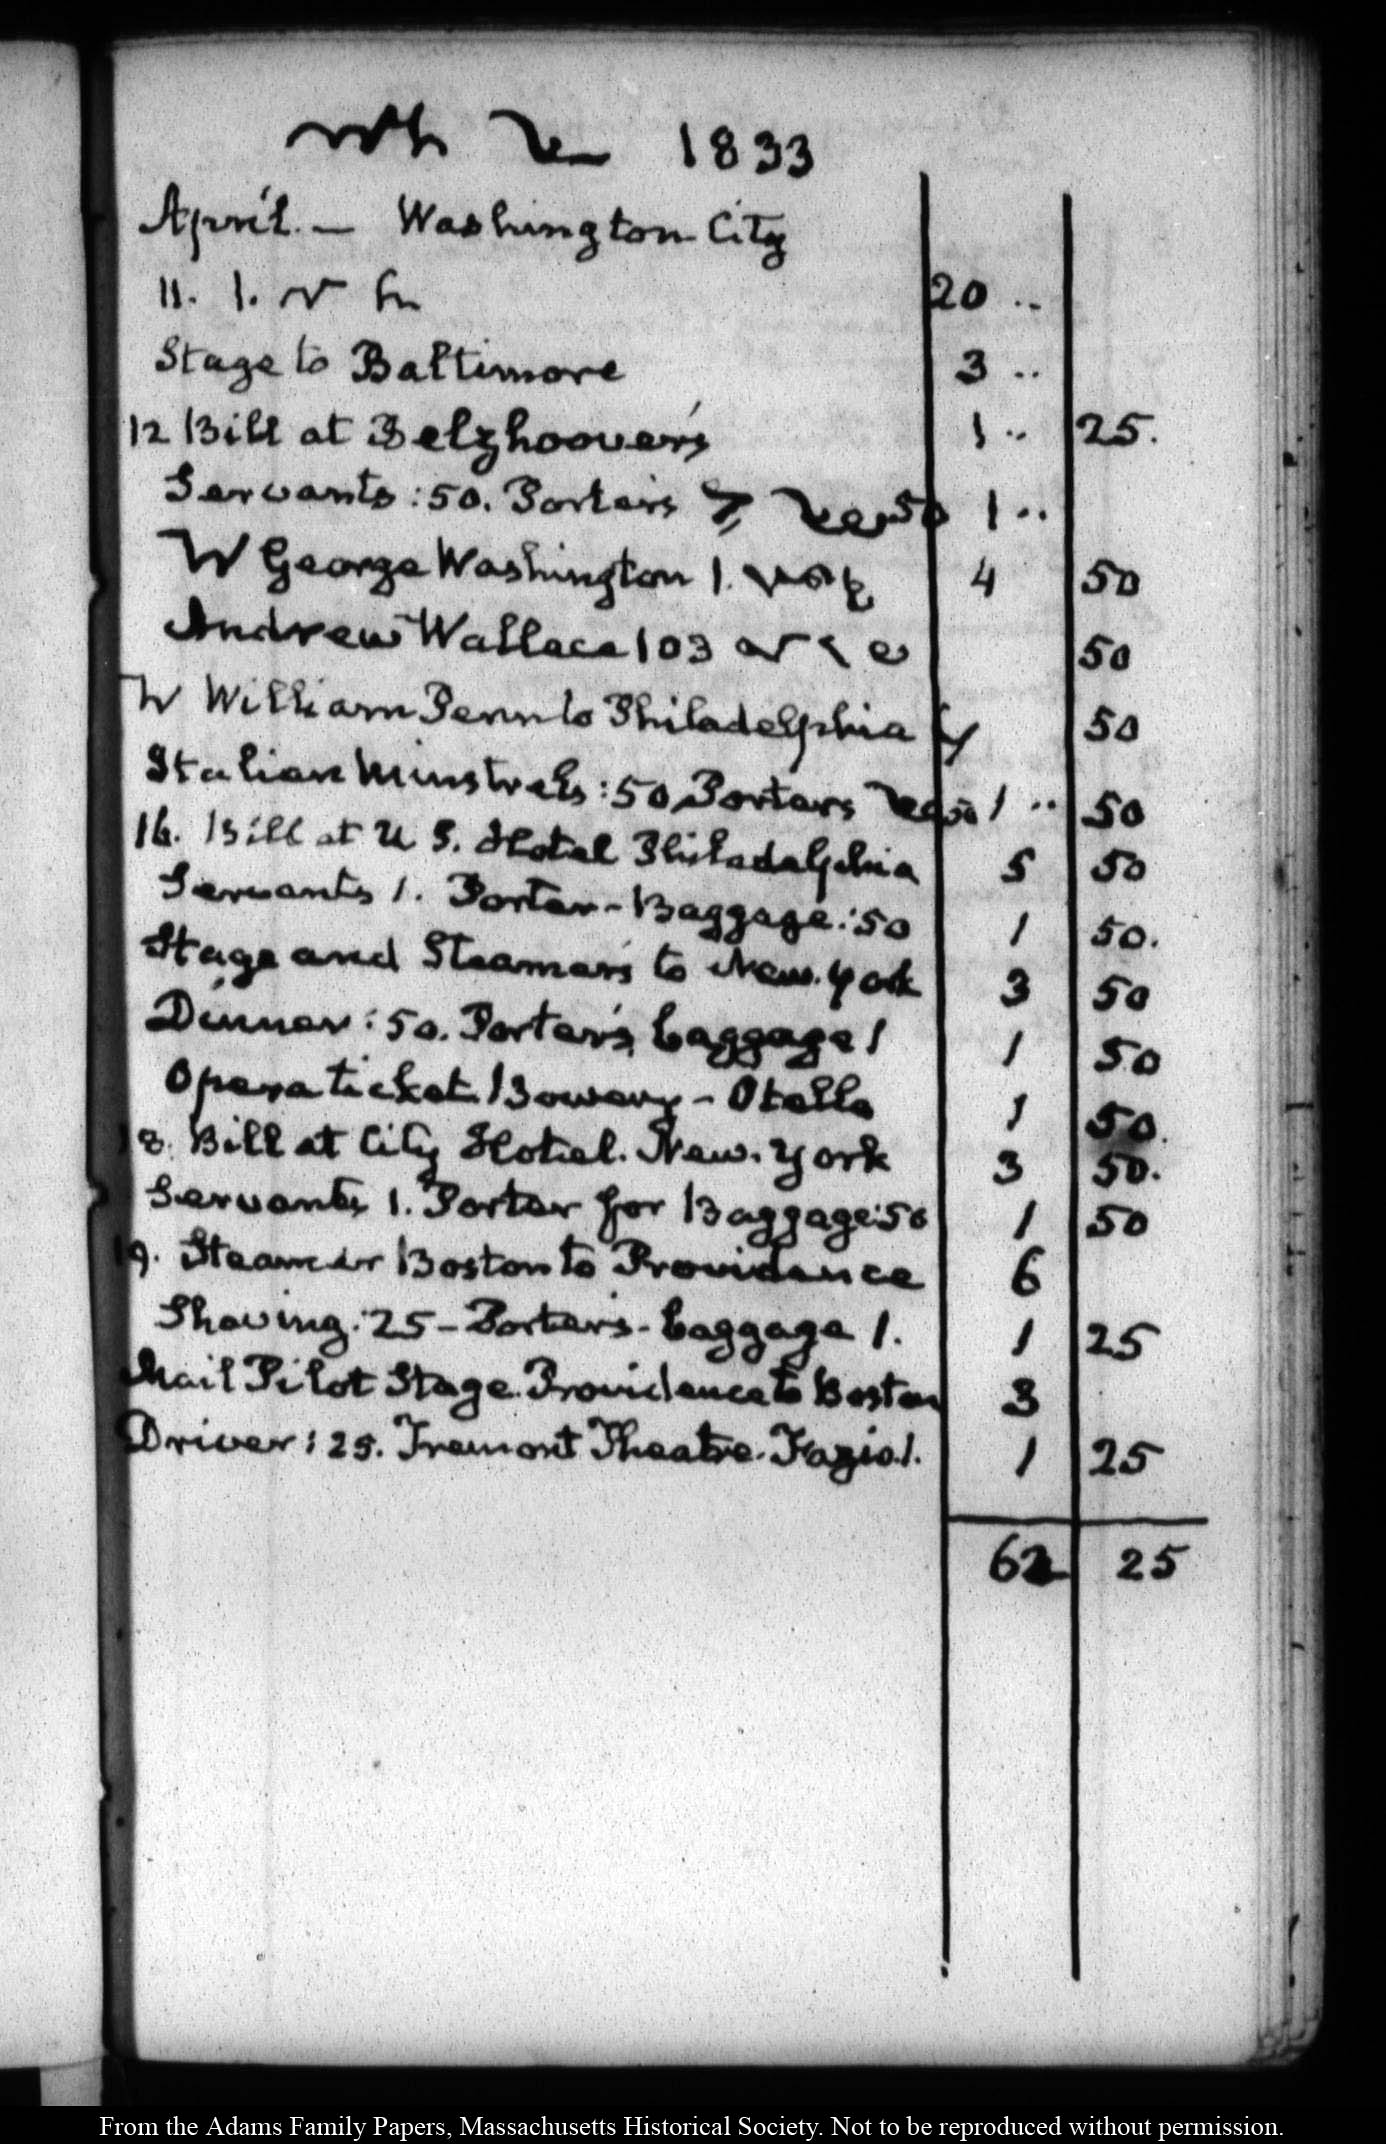 1833
April. — Washington City
11. 1. 20 ..
Stage to Baltimore 3 ..
12 Bill at Belzhoover's 1 .. 25.
Servants :50. Porters 50 1 ..
W George Washington 1. 4 50
Andrew Wallace 103 50
W William Penn to Philadelphia 50
Italian Minstrels :50 Porters 50 1 .. 50
16. Bill at U S. Hotel Philadelphia 5 50
Servants 1. Porter - Baggage :50 1 50.
Stage and Steamers to New. York 3 50
Dinner :50. Porter's baggage 1 1 50
Opera ticket Bowery - Otello 1 50.
18. Bill at City Hotel. New. York 3 50.
Servants 1. Porter for Baggage :50 1 50
19. Steamer Boston to Providence 6
Shaving :25 - Porters - baggage 1. 1 25
Mail Pilot Stage. Providence to Boston 3
Driver :25. Tremont Theatre. Fazio. 1. 1 25
62 25
From the Adams Family Papers, Massachusetts Historical Society. Not to be reproduced without permission.